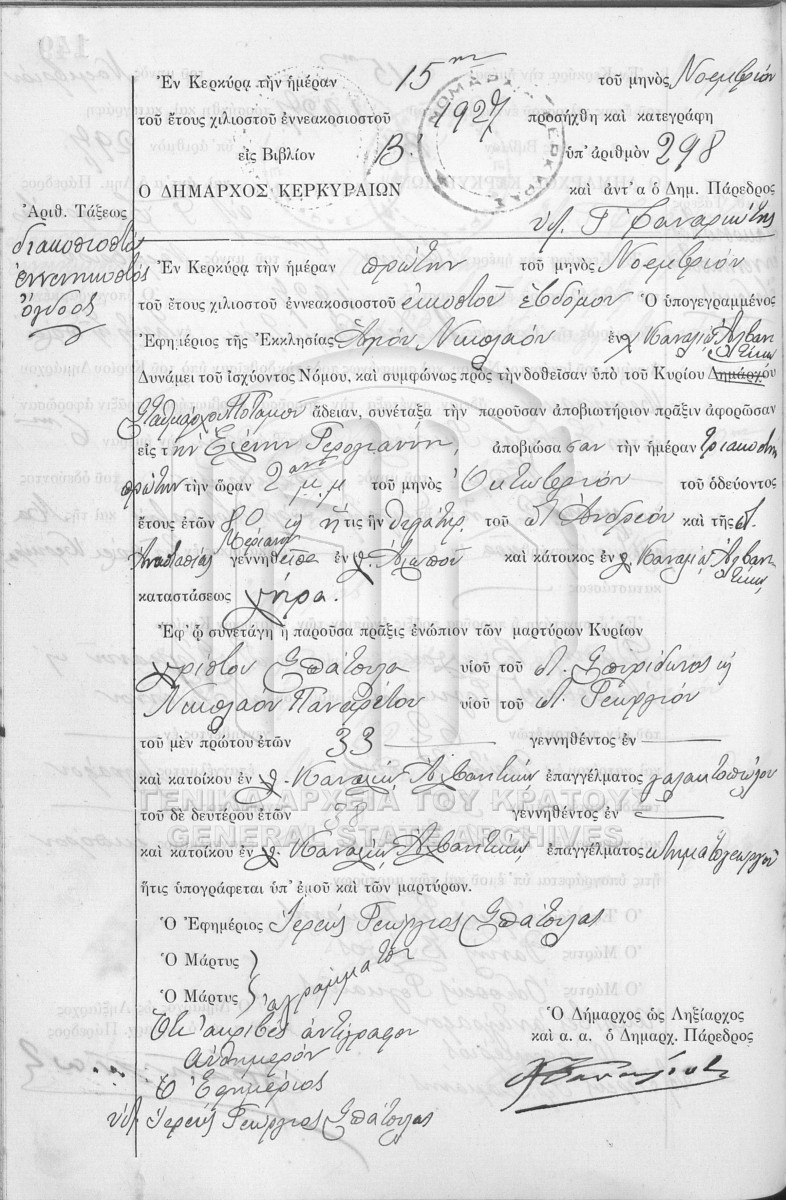 Ἐν Κερκύρᾳ τὴν ἡμέραν 15ην τοῦ μηνὸς Νοεμβρίου
τοῦ ἔτους χιλιοστοῦ ἐννεακοσιοστοῦ 1927 προσήχθη καὶ κατεγράφη
εἰς Βιβλίον Β' ὑπ' ἀριθμὸν 298
Ο ΔΗΜΑΡΧΟΣ ΚΕΡΚΥΡΑΙΩΝ καὶ ἀντ' α ὁ Δημ. Πάρεδρος
Ἀριθ. Τάξεως
διακοσιοστὸς
ἐννενηκοστὸς
ὄγδοος
Ἐν Κερκύρᾳ τὴν ἡμέραν πρώτην τοῦ μηνὸς Νοεμβρίου
τοῦ ἔτους χιλιοστοῦ ἐννεακοσιοστοῦ εἰκοστοῦ ἑβδόμου Ὁ ὑπογεγραμμένος
Ἐφημέριος τῆς Ἐκκλησίας Ἁγίου Νικολάου ἐν χ. Καναλίῳ
Δυνάμει τοῦ ἰσχύοντος Νόμου, καὶ συμφώνως πρὸς τὴν δοθεῖσαν ὑπὸ τοῦ Κυρίου Δημάρχου
Σταθμάρχου Ποταμοῦ ἄδειαν, συνέταξα τὴν παροῦσαν ἀποβιωτήριον πρᾶξιν ἀφορῶσαν
εἰς τὴν Ἑλένην Γερογιάννη, ἀποβιώσασαν τὴν ἡμέραν τριακοστὴν
πρώτην τὴν ὥραν 2αν μ.μ τοῦ μηνὸς Ὀκτωβρίου τοῦ ὁδεύοντος
ἔτους ἐτῶν 80 ἥτις ἦν θυγάτηρ τοῦ Ἀνδρέου καὶ τῆς
Ἀναστασίας Μεριανοῦ γεννηθεῖσα ἐν χ. καὶ κάτοικος ἐν χ. Καναλίῳ
καταστάσεως χήρα.
Ἐφ' ᾧ συνετάγη ἡ παροῦσα πρᾶξις ἐνώπιον τῶν μαρτύρων Κυρίων
Χρίστου Σπάτουλα υἱοῦ τοῦ Σπυρίδωνος
Νικολάου Παναρέτου υἱοῦ τοῦ Γεωργίου
τοῦ μὲν πρώτου ἐτῶν 33 γεννηθέντος ἐν
καὶ κατοίκου ἐν χ. ἐπαγγέλματος γαλακτοπώλου
ΓΕΝΙΚΑ ΑΡΧΕΙΑ ΤΟΥ ΚΡΑΤΟΥΣ
τοῦ δὲ δευτέρου ἐτῶν 38 γεννηθέντος ἐν
GENERAL STATE ARCHIVES
καὶ κατοίκου ἐν χ. ἐπαγγέλματος κτηματογεωργοῦ
ἥτις ὑπογράφεται ὑπ' ἐμοῦ καὶ τῶν μαρτύρων.
Ὁ Ἐφημέριος Ἱερεὺς Γεώργιος Σπάτουλας
Ὁ Μάρτυς
Ὁ Μάρτυς ἀγράμματοι
Ὅτι ἀκριβὲς ἀντίγραφον
αὐθημερόν
Ὁ Ἐφημέριος
Ἱερεὺς Γεώργιος Σπάτουλας
Ὁ Δήμαρχος ὡς Ληξίαρχος
καὶ α. α. ὁ Δημαρχ. Πάρεδρος